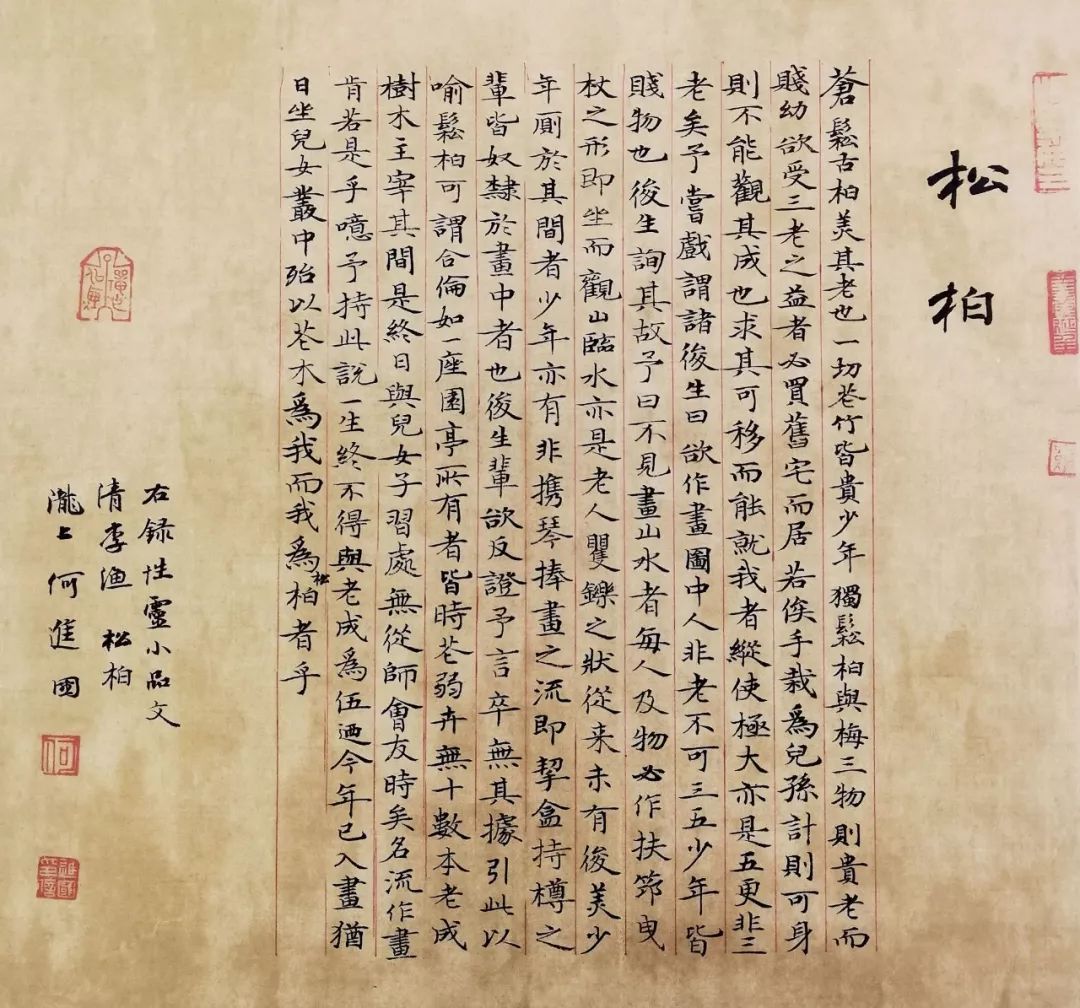 松柏
蒼鬆古柏美其老也一切花竹皆貴少年獨鬆柏與梅三物則貴老而
賤幼欲受三老之益者必買舊宅而居若俟手栽爲兒孫計則可身
則不能觀其成也求其可移而能就我者縱使極大亦是五更非三
老矣予嘗戲謂諸後生曰欲作畫圖中人非老不可三五少年皆
賤物也後生詢其故予曰不見畫山水者每人及物必作扶筇曳
杖之形即坐而觀山臨水亦是老人矍鑠之狀從来未有俊美少
年厠於其間者少年亦有非携琴捧畫之流即挈盒持樽之
輩皆奴隸於畫中者也後生輩欲反證予言卒無其據引此以
喻鬆柏可謂合倫如一座園亭所有者皆時花弱卉無十數本老成
樹木主宰其間是終日與兒女子習處無從師會友時矣名流作畫
肯若是乎噫予持此說一生終不得與老成爲伍迺今年已入畫猶
日坐兒女叢中殆以花木爲我而我爲松柏者乎
右録性靈小品文
清李漁 松柏
瀧上何進國
何